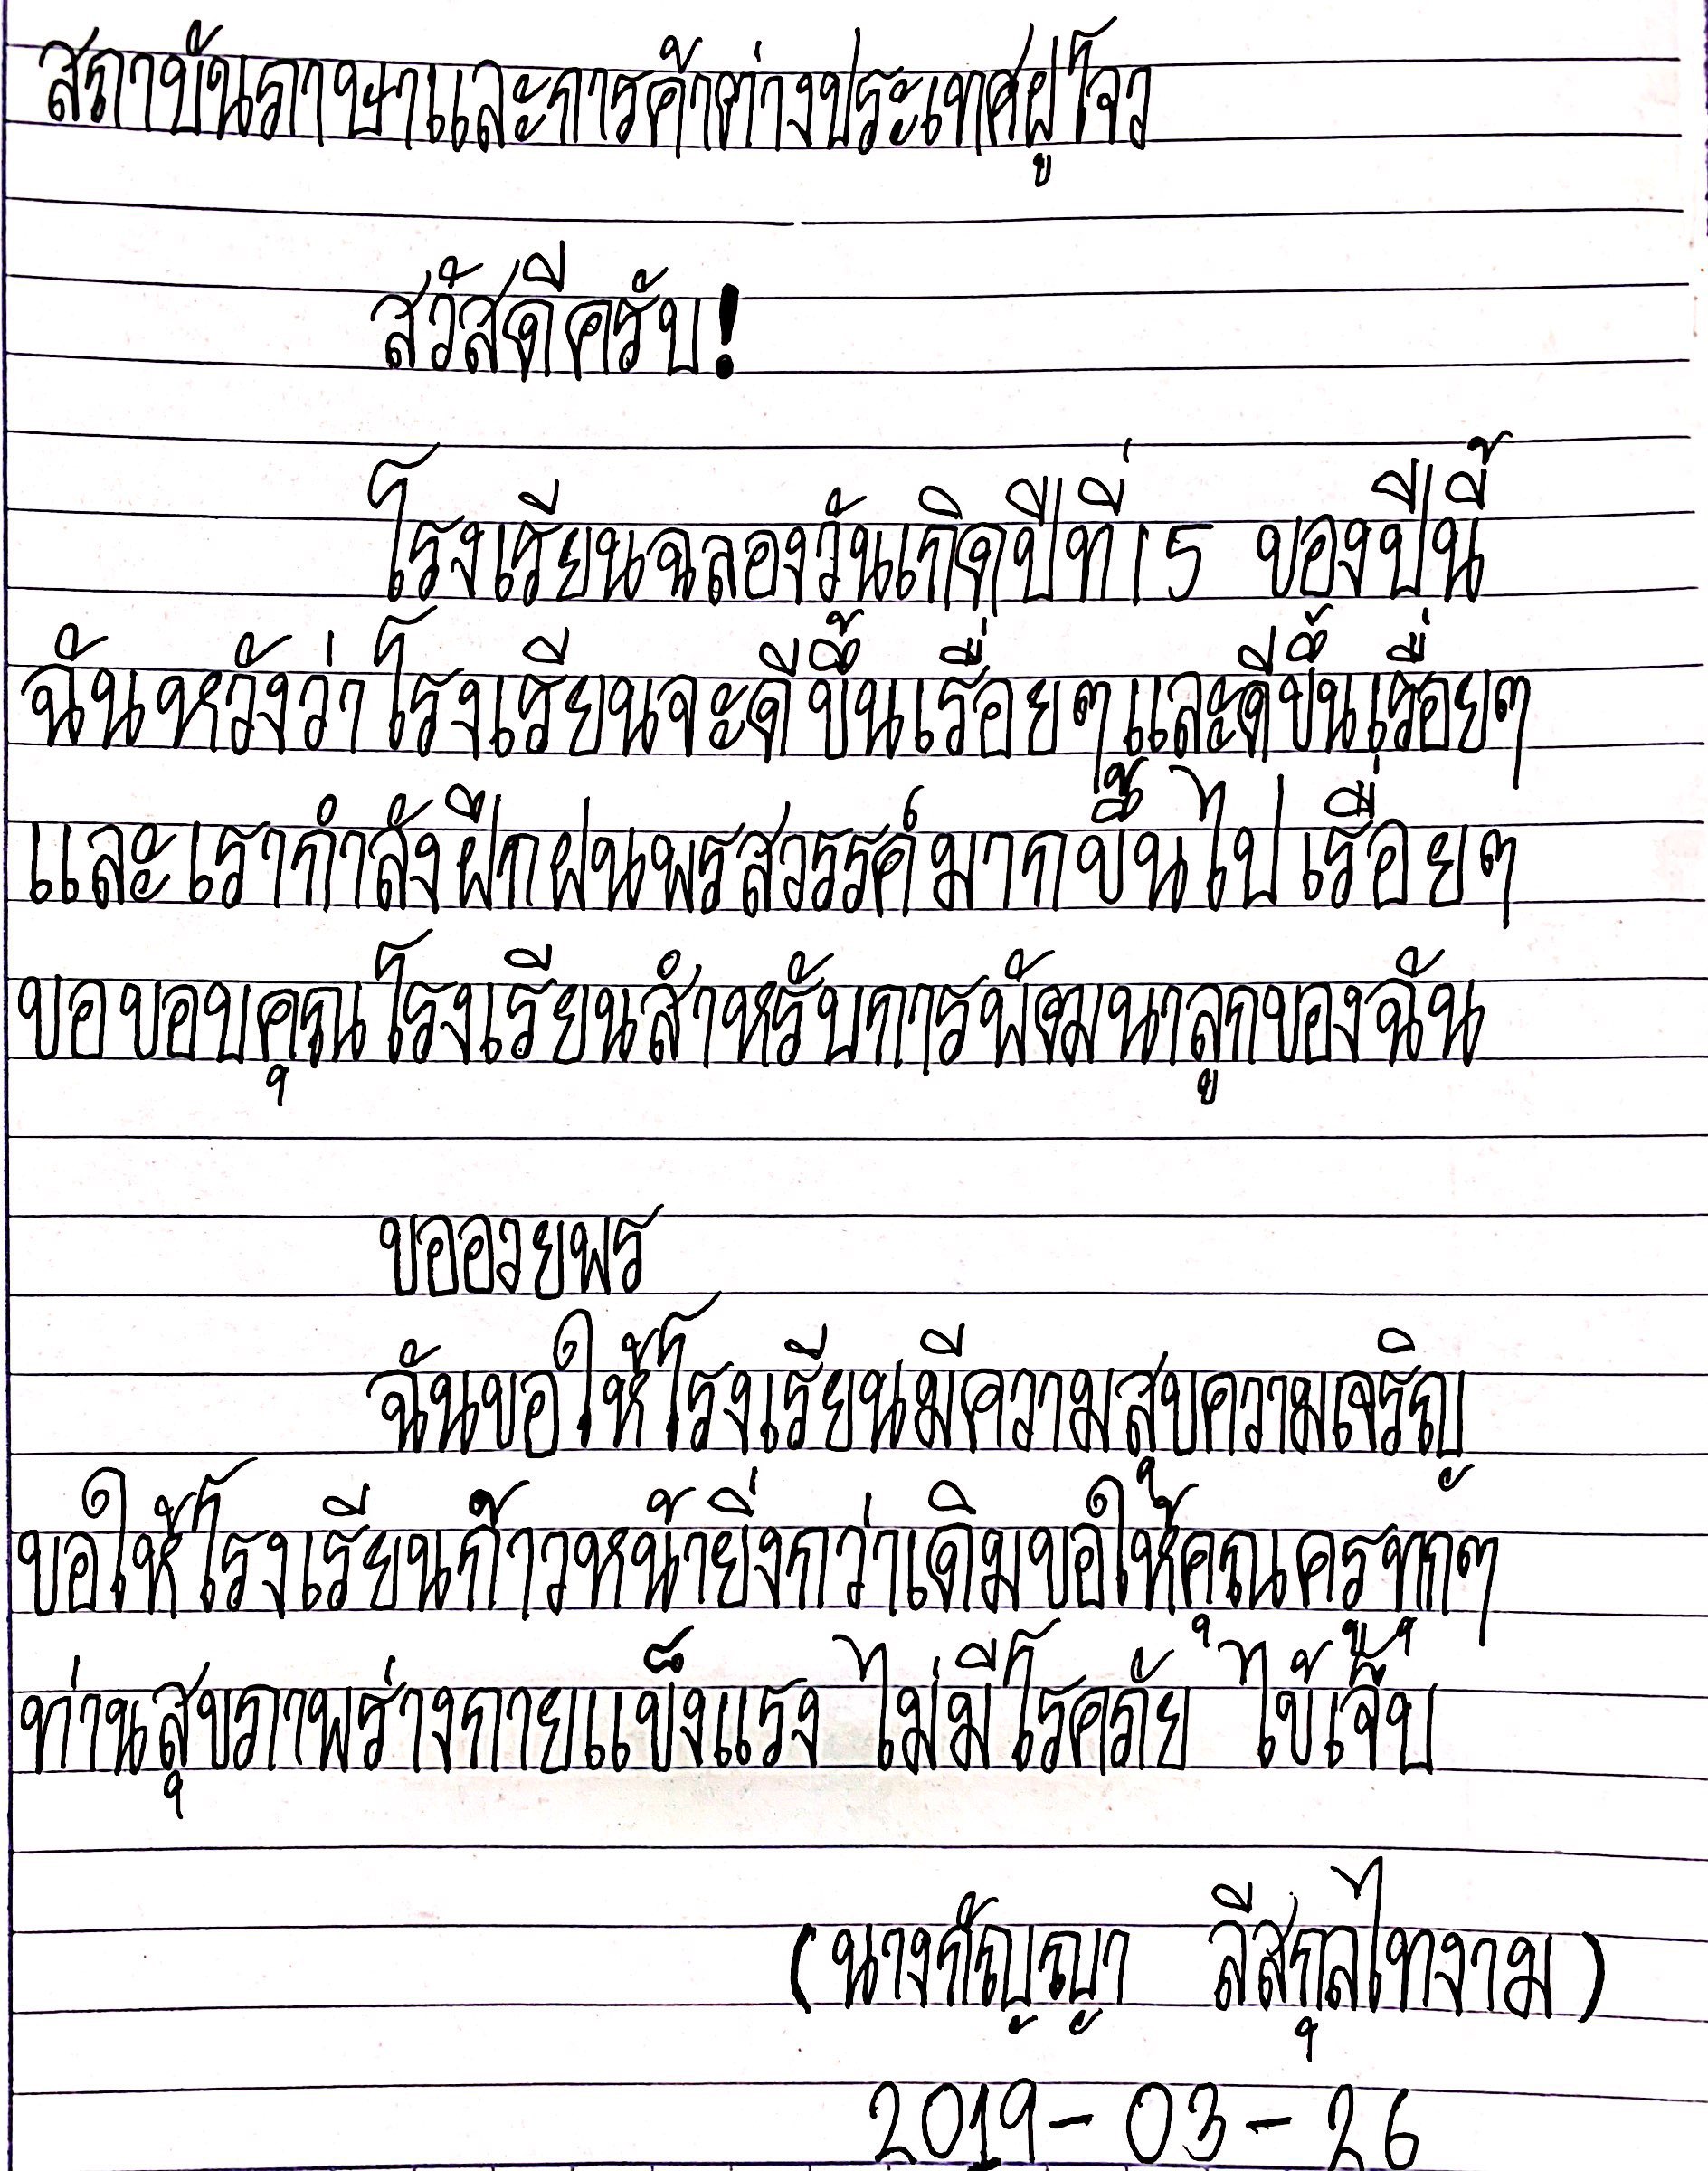 สถาบันภาษาและการค้าต่างประเทศฝูโจว
สวัสดีครับ!
โรงเรียนฉลองวันเกิดปีที่15 ของปีนี้
ฉันหวังว่าโรงเรียนจะดีขึ้นเรื่อยๆและดีขึ้นเรื่อยๆ
และเรากำลังฝึกฝนพรสวรรค์มากขึ้นไปเรื่อยๆ
ขอขอบคุณโรงเรียนสำหรับการพัฒนาลูกของฉัน
ขออวยพร
ฉันขอให้โรงเรียนมีความสุขความเจริญ
ขอให้โรงเรียนก้าวหน้ายิ่งกว่าเดิมขอให้คุณครูทุกๆ
ท่านสุขภาพร่างกายแข็งแรง ไม่มีโรคภัย ไข้เจ็บ
(นางกัญญา ลีสกุลไทงาม)
2019-03-26